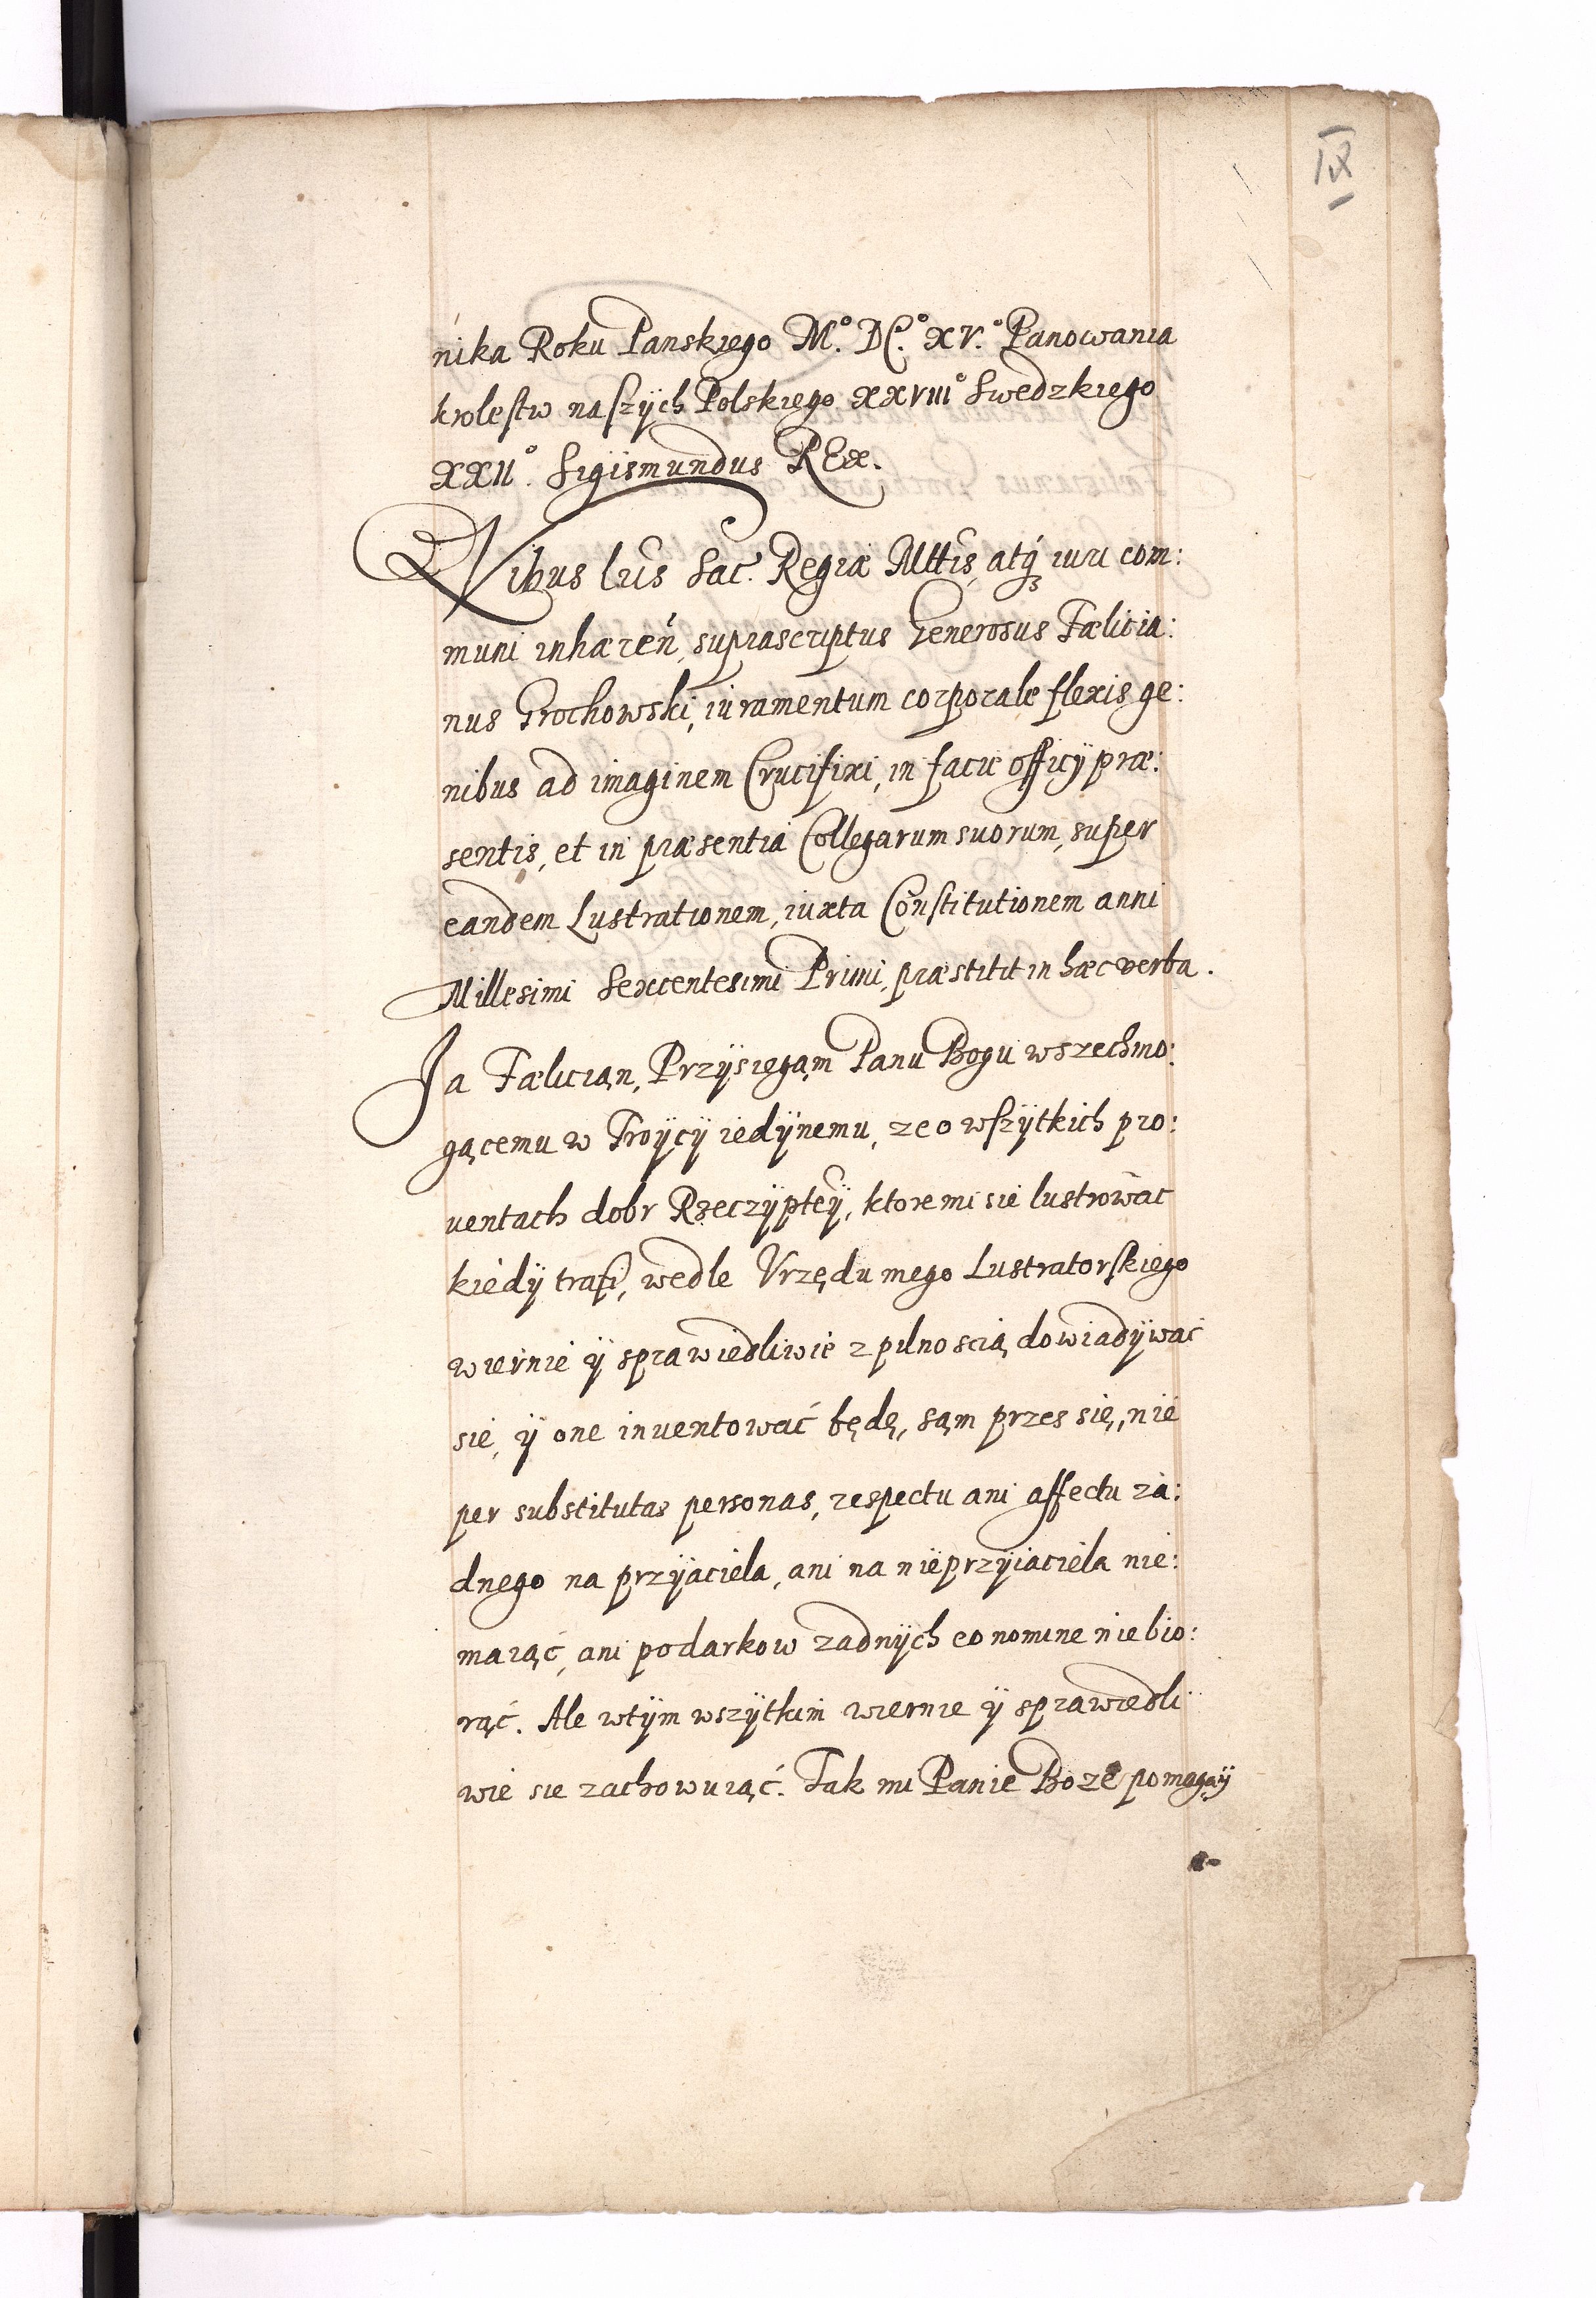 IX
nika Roku Panskiego M.º DC.º XV.º Panowania
krolestw naszÿch Polskiego XXVIIIº Swedzkiego
XXIIº. Sigismundus REx.
Quibus lris Sac. Regiæ Mttis, atq₃ iuri com:
muni inhæren̄, suprascriptus Generosus Fælicia:
nus Grochowski, iuramentum corporale flexis ge:
nibus ad imaginem Crucifixi, in facie officÿ præ:
sentis, et in præsentia Collegarum suorum, super
eandem Lustrationem, iuxta Constitutionem anni
Millesimi Sexcentesimi Primi, præstitit in hæc verba.
Ja Fælician, Przÿsiegąm Panu Bogu wszechmo:
gącemu w Troÿcÿ iedÿnemu, ze o wszÿtkich pro:
uentach dobr Rzeczÿpteÿ, ktore mi sie lustrowac
kiedÿ trafi, wedle Vrzędu mego Lustratorskiego
wiernie ÿ sprawiedliwie z pilnoscią dowiadÿwac
sie, ÿ one inuentować będę, sąm przes się, nie
per substitutas personas, respectu ani affectu za:
dnego na przÿaciela, ani na nieprzÿiaciela nie:
maiąć, ani podarkow zadnÿch eo nomine nie bio:
rąć. Ale wtÿm wszÿtkim wiernie ÿ sprawiedli
wie sie zachowuiąć. Tak mi Panie Boze pomagaÿ